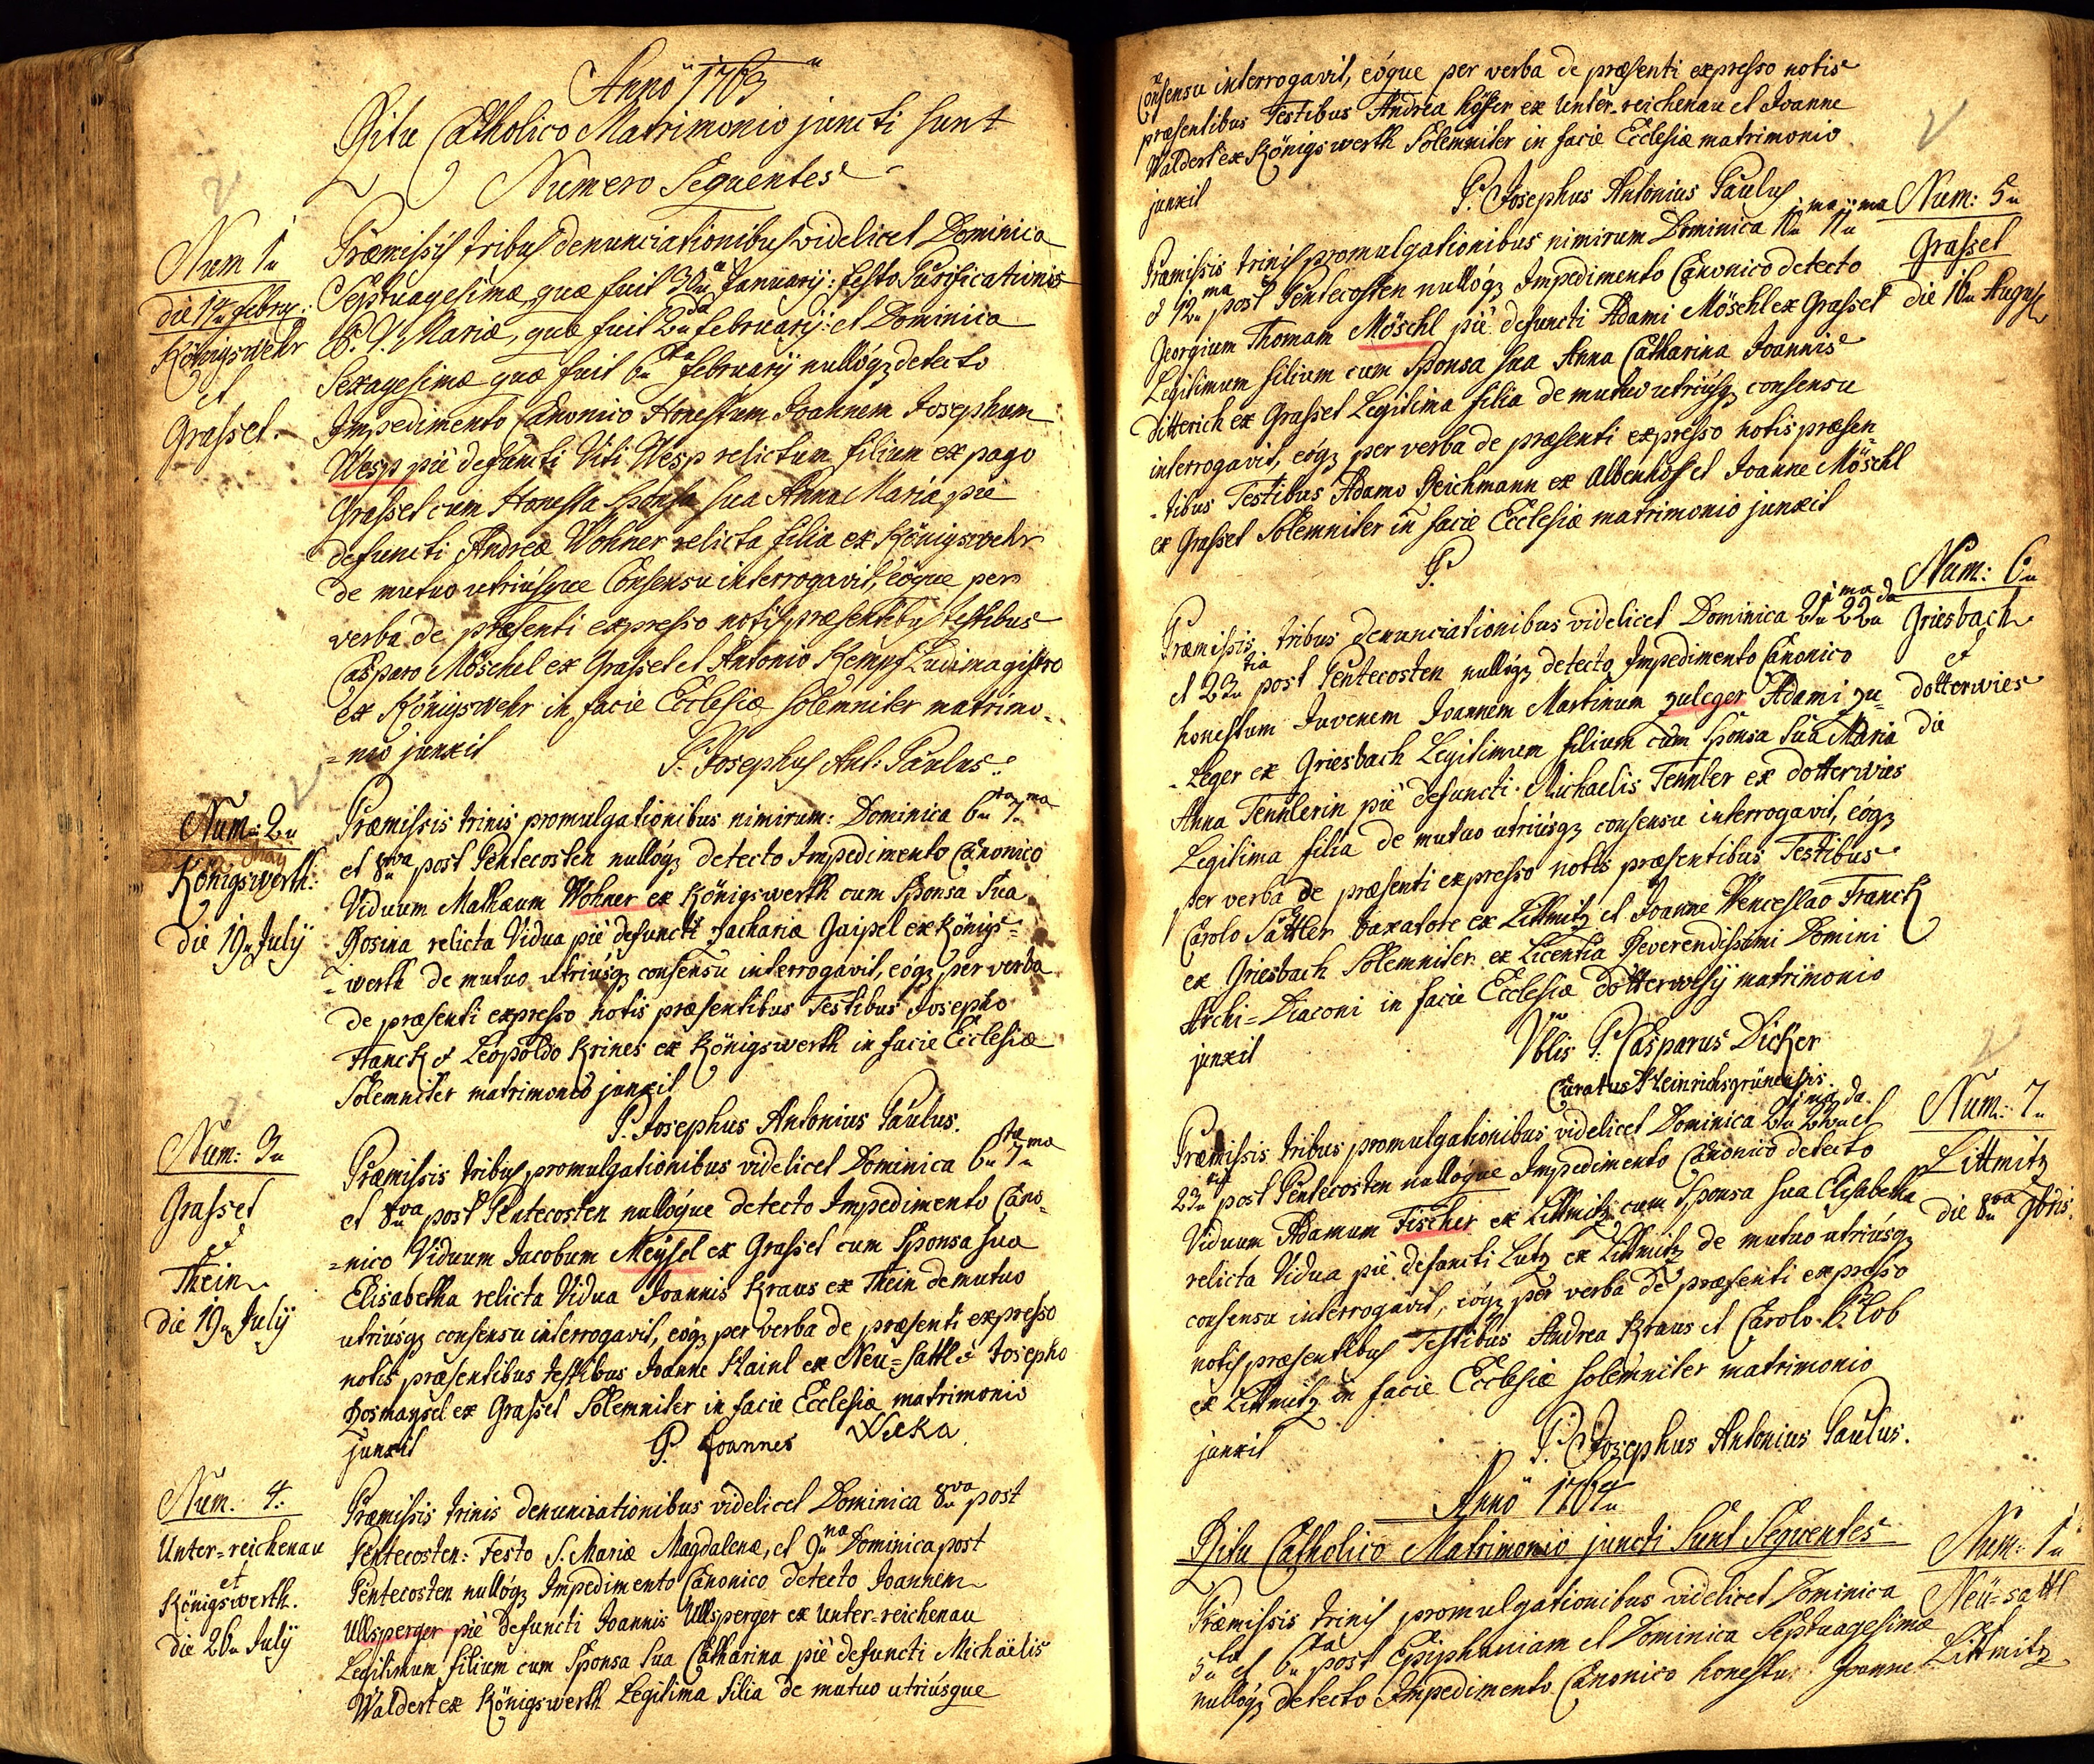 Anno 1763
Ritu Catholico Matrimonio juncti sunt
Numero Sequentes
Num 1
die 14 febru:
Königswehr
et
Grasset.
Præmissis tribus denunciationibus videlicet Dominica
Septuagesimæ quæ fuit 30 Januarij: festo Purificationis
B. V. Mariæ, quæ fuit 2da februarij: et Dominica
Sexagesimæ quæ fuit 6ta february nullóq detecto
Impedimento Canonico Honestum Joannem Josephum
Wesp piè defuncti Viti Wesp relictum filium ex pago
Grasset cum Honesta Sponsa sua Anna Maria piè
defuncti Andreæ Wohner relicta filia ex Königswehr
de mutuo utriúsque Consensu interrogavit, eóque per
verba de præsenti expresso notis præsentibus testibus
Casparo Möschel ex Grasset et Antonio Kempf Ludimagistro
ex Königswehr in facie Ecclesiæ solemniter matrimo=
=nio junxit
P. Josephus Ant: Paulus.
Num: 2
Königswerth:
die 19 July
Præmissis trinis promulgationibus nimirum: Dominica 6ta 7ma
et 8va post Pentecosten nullóq detecto Impedimento Canonico
Viduum Mathæum Wohner ex Königswerth cum Sponsa Sua
Rosina relicta Vidua piè defuncti Zachariæ Gaipel ex Königs=
=werth de mutuo utriúsq consensu interrogavit, eóq per verba
de præsenti expresso notis præsentibus Testibus Josepho
Franck et Leopoldo Krines ex Königswerth in facie Ecclesiæ
Solemniter matrimonio junxit
P. Josephus Antonius Paulus.
Num: 3
Grasset
et
Thein
die 19 July
Præmissis tribus promulgationibus videlicet Dominica 6ta 7ma
et 8va post Pentecosten nullóque detecto Impedimento Cano=
=nico Viduum Jacobum Meysel ex Grasset cum Sponsa sua
Elisabetha relicta Vidua Joannis Kraus ex Thein de mutuo
utriúsq consensu interrogavit, eóq per verba de præsenti expresso
notis præsentibus testibus Joanne Hainl ex Neu=sattl et Josepho
Rosmaysel ex Grasset Solemniter in facie Ecclesiæ matrimonio
junxit
P. Joannes Wicka
Num: 4.
Unter=reichenau
et
Königswerth.
die 26 July
Præmissis trinis denunciationibus videlicet Dominica 8va post
Pentecosten: Festo S. Mariæ Magdalenæ, et 9na Dominica post
Pentecosten nullóq Impedimento Canonico detecto Joannem
Ullsperger piè defuncti Joannis Ullsperger ex Unter=reichenau
Legitimum filium cum Sponsa Sua Catharina piè defuncti Michaëlis
Waldert ex Königswerth Legitima filia de mutuo utriúsque
Consensu interrogavit, eóque per verba de præsenti expresso notis
præsentibus Testibus Andrea ex Unter-reichenau et Joanne
Waldert ex Königswerth Solemniter in facie Ecclesiæ matrimonio
junxit
P. Josephus Antonius Paulus
Num: 5
Grasset
die 16 August
Præmissis trinis promulgationibus nimirum Dominica 10ma 11ma
et 12ma post Pentecosten nullóq Impedimento Canonico detecto
Georgium Thomam Möschl piè defuncti Adami Möschl ex Grasset
Legitimum filium cum Sponsa sua Anna Catharina Joannis
Ditterich ex Grasset Legitima filia de mutuo utriúsq consensu
interrogavit, eóq per verba de præsenti expresso notis præsen
-tibus Testibus Adamo Reichmann ex Albenhof et Joanne Möschl
ex Grasset Solemniter in facie Ecclesiæ matrimonio junxit
P.
Num: 6
Griesbach
et
dotterwies
die
Præmissis tribus denunciationibus videlicet Dominica 21ma 22da
et 23tia post Pentecosten nullóq detecto Impedimento Canonico
honestum Juvenem Joannem Martinum Zuleger Adami Zu=
-leger ex Griesbach Legitimum filium cum Sponsa Sua Maria
Anna Tennlerin piè defuncti Michaelis Tennler ex dotterwies
Legitima filia de mutuo utriúsq consensu interrogavit, eóq
per verba de præsenti expresso notis præsentibus Testibus
Carolo Sattler taxatore ex Littmitz et Joanne Wenceslao Franck
ex Griesbach Solemniter ex Licentia Reverendissimi Domini
Archi=Diaconi in facie Ecclesiæ dotterwesij matrimonio
junxit
Vblis P. Casparus Dicker
Curatus Heinrichsgrünensis.
Num: 7
Littmitz
die 8va 9bris.
Præmissis tribus promulgationibus videlicet Dominica 21ma 22da et
23tia post Pentecosten nullóque Impedimento Canonico detecto
Viduum Adamum Fischer ex Littmitz cum Sponsa sua Elisabetha
relicta Vidua piè defuncti Lutz ex Littmitz de mutuo utriúsq
consensu interrogavit, eóq per verba de præsenti expresso
notis præsentibus Testibus Andrea Kraus et Carolo
ex Littmitz in facie Ecclesiæ solemniter matrimonio
junxit
P. Josephus Antonius Paulus.
Anno 1764
Ritu Catholico Matrimonio juncti sunt Sequentes
Num: 1
Neü=sattl
Littmitz
Præmissis trinis promulgationibus videlicet Dominica
5ta et 6ta post Epiphaniam et Dominica Septuagesimæ
nullóq detecto Impedimento Canonico honestu Joanne